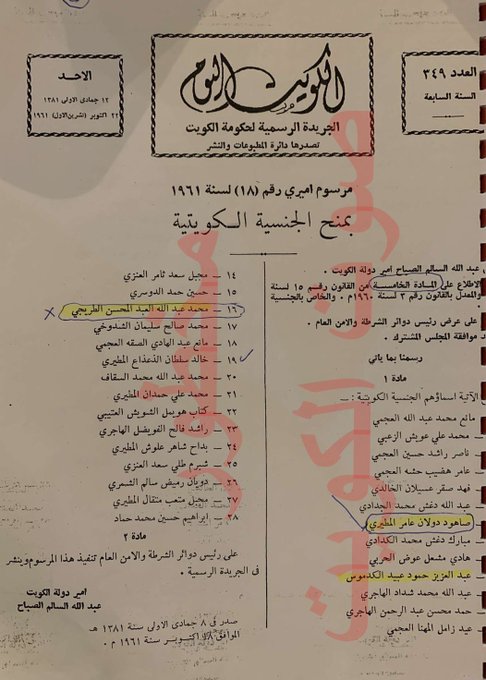 العدد ٣٤٩
السنة السابعة
الكويت اليوم
الجريدة الرسمية لحكومة الكويت
تصدرها دائرة المطبوعات والنشر
الاحد
١٢ جمادى الاولى ١٣٨١
٢٢ اكتوبر (تشرين الاول) ١٩٦١
مرسوم اميري رقم (١٨) لسنة ١٩٦١
بمنح الجنسية الكويتية
عبد الله السالم الصباح امير دولة الكويت .
الاطلاع على المادة الخامسة من القانون رقم ١٥ لسنة
والمعدل بالقانون رقم ٣ لسنة ١٩٦٠م . والخاص بالجنسية
على عرض رئيس دوائر الشرطة والامن العام .
موافقة المجلس المشترك .
رسمنا بما يأتي
مادة ١
الآتية اسماؤهم الجنسية الكويتية : ـــ
مانع محمد عبد الله العجمي
محمد علي عويش الزعبي
ناصر راشد حسين العجمي
عامر هضيب حشه العجمي
فهد صقر عسيلان الخالدي
عبد الله دغش محمد الحدادي
صاهود دولان عامر المطيري
مبارك دغش محمد الكدادي
هادي مشعل عوض الحربي
عبد العزيز حمود عبيد الكدموس
عبد الله محمد شداد الهاجري
حمد محسن عبد الرحمن الهاجري
عيد زامل المهنا العجمي
١٤ ـ محيل سعد ثامر العنزي
١٥ ـ حسين حمد الدوسري
١٦ ـ محمد عبد الله العبد المحسن الطريجي
١٧ ـ محمد صالح سليمان الشدوخي
١٨ ـ مانع عبد الهادي الصقعه العجمي
١٩ ـ خالد سلطان الذعذاع المطيري
٢٠ ـ محمد عبد الله محمد السقاف
٢١ ـ محمد علي حمدان المطيري
٢٢ ـ كتاب هويمل الشويش العتيبي
٢٣ ـ راشد فالح الفويضل الهاجري
٢٤ ـ بداح شاهر علوش المطيري
٢٥ ـ شبرم طلي سعد العنزي
٢٦ ـ دويان رميض سالم الشمري
٢٧ ـ محيل متعب متقال المطيري
٢٨ ـ ابراهيم حسين محمد حماد
مادة ٢
على رئيس دوائر الشرطة والامن العام تنفيذ هذا المرسوم وينشر
في الجريدة الرسمية .
امير دولة الكويت
عبد الله السالم الصباح
صدر في ٨ جمادى الاولى سنة ١٣٨١ هـ
الموافق ١٨ اكتوبر سنة ١٩٦١ م .
صوت الكويت